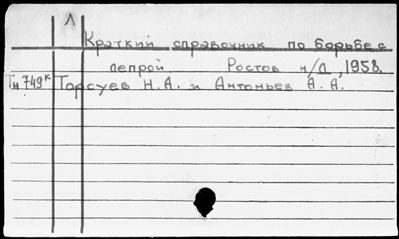 Λ
Краткий справочник по борьбе с
лепрой Ростов н/Д, 1958.
Тн 749к Торсуев Н.А. и Антоньев А.А.